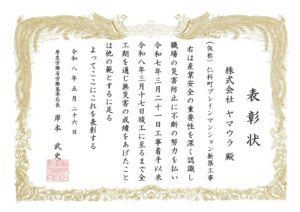 表彰状
株式会社 ヤマウラ 殿
(仮称)仁科町ブレインマンション新築工事
右は産業安全の重要性を深く認識し
職場の災害防止に不断の努力を払い
令和七年三月二十一日工事着手以来
令和八年三月十七日竣工に至るまで全
工期を通じ無災害の成績をあげたこと
は他の範とするに足る
よってここにこれを表彰する
令和八年五月二十六日
厚生労働省労働基準局長 岸本 武史